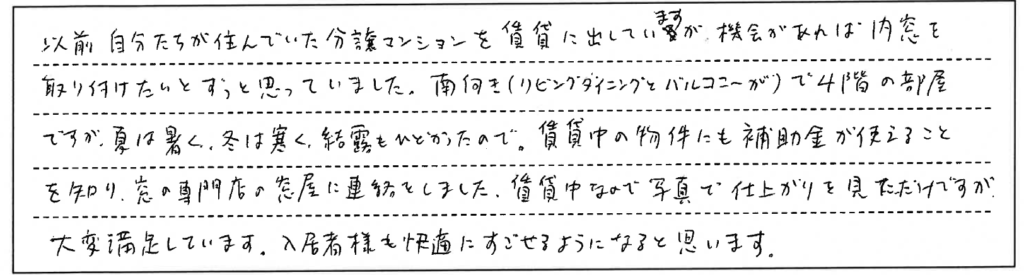 以前 自分たちが住んでいた分譲マンションを賃貸に出していますが、機会があれば内窓を
取り付けたいとずっと思っていました。南向き(リビングダイニングとバルコニーが)で4階の部屋
ですが、夏は暑く、冬は寒く、結露もひどかったので。賃貸中の物件にも補助金が使えること
を知り、窓の専門店の窓屋に連絡をしました。賃貸中なので写真で仕上がりを見ただけですが、
大変満足しています。入居者様も快適にすごせるようになると思います。